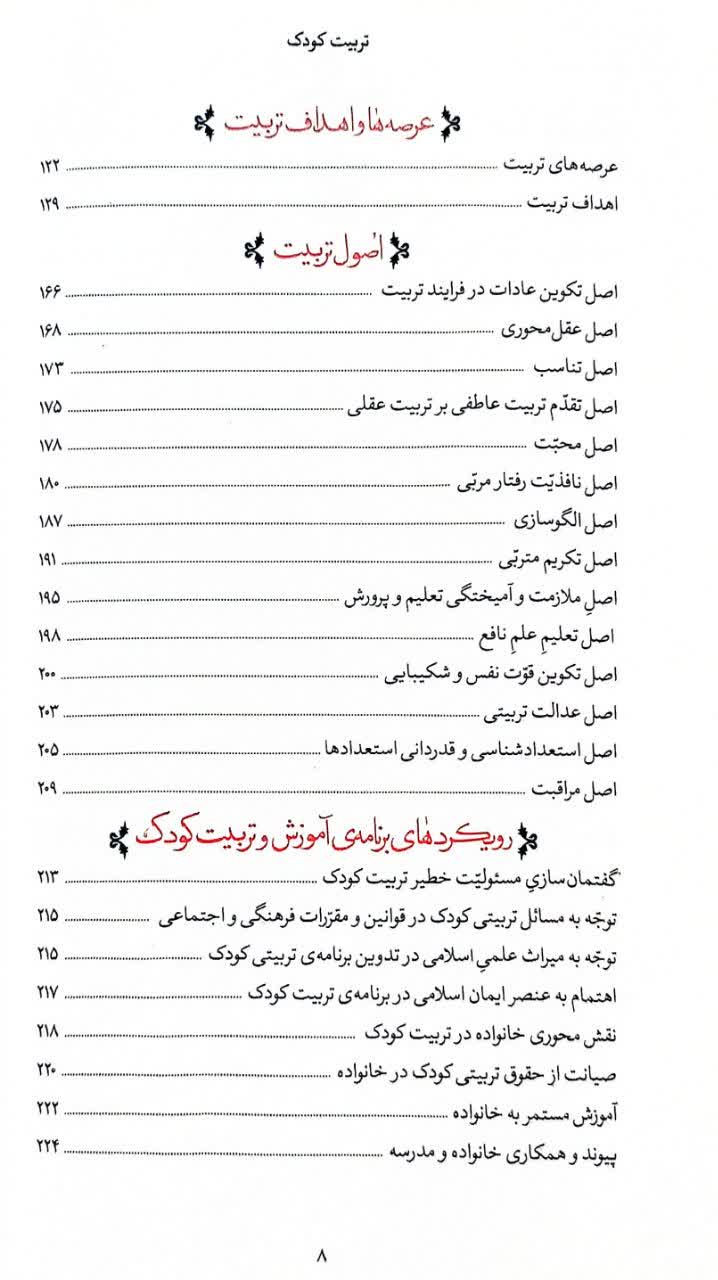 تربیت کودک
عرصه‌ها و اهداف تربیت
عرصه‌های تربیت ۱۲۲
اهداف تربیت ۱۲۹
اصول تربیت
اصل تکوین عادات در فرایند تربیت ۱۶۶
اصل عقل‌محوری ۱۶۸
اصل تناسب ۱۷۳
اصل تقدّم تربیت عاطفی بر تربیت عقلی ۱۷۵
اصل محبّت ۱۷۸
اصل نافذیّت رفتار مربّی ۱۸۰
اصل الگوسازی ۱۸۷
اصل تکریم متربّی ۱۹۱
اصلِ ملازمت و آمیختگی تعلیم و پرورش ۱۹۵
اصل تعلیمِ علمِ نافع ۱۹۸
اصل تکوین قوّت نفس و شکیبایی ۲۰۰
اصل عدالت تربیتی ۲۰۳
اصل استعدادشناسی و قدردانی استعدادها ۲۰۵
اصل مراقبت ۲۰۹
رویکردهای برنامه‌ی آموزش و تربیت کودک
گفتمان‌سازیِ مسئولیّت خطیر تربیت کودک ۲۱۳
توجّه به مسائل تربیتی کودک در قوانین و مقرّرات فرهنگی و اجتماعی ۲۱۵
توجّه به میراث علمیِ اسلامی در تدوین برنامه‌ی تربیتی کودک ۲۱۵
اهتمام به عنصر ایمان اسلامی در برنامه‌ی تربیت کودک ۲۱۷
نقش محوری خانواده در تربیت کودک ۲۱۸
صیانت از حقوق تربیتی کودک در خانواده ۲۲۰
آموزش مستمر به خانواده ۲۲۲
پیوند و همکاری خانواده و مدرسه ۲۲۴
۸